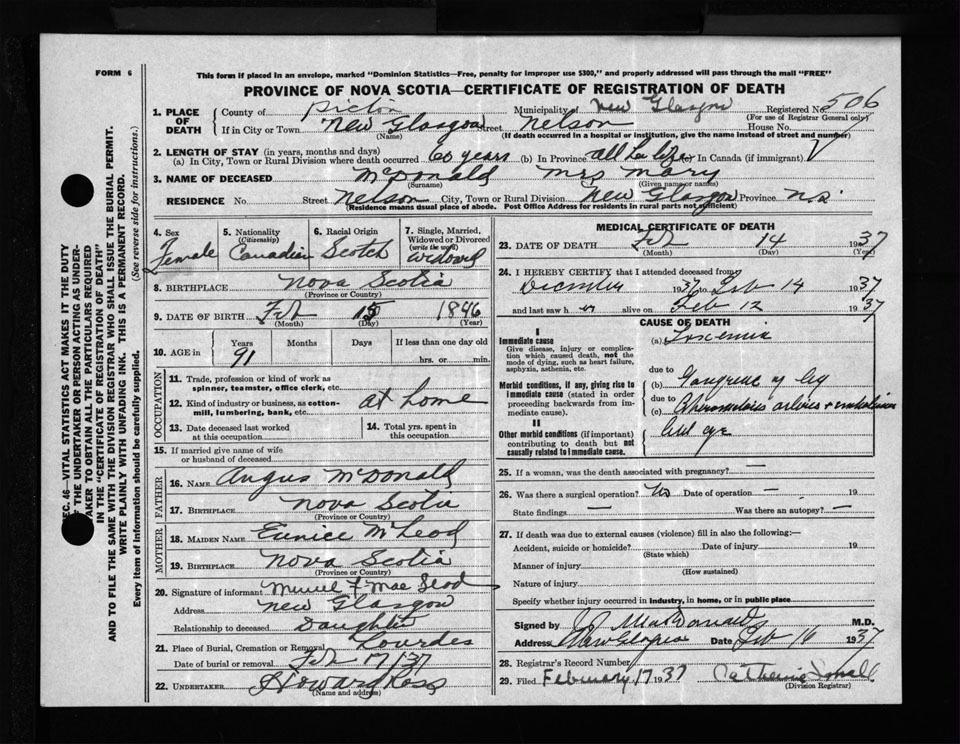 FORM 6
This form if placed in an envelope, marked "Dominion Statistics—Free, penalty for improper use $300," and properly addressed will pass through the mail "FREE"
PROVINCE OF NOVA SCOTIA—CERTIFICATE OF REGISTRATION OF DEATH
1. PLACE OF DEATH
County of Pictou Municipality of New Glasgow Registered No. 506
(For use of Registrar General only)
If in City or Town New Glasgow Street Nelson House No.
(Name) (If death occurred in a hospital or institution, give the name instead of street and number)
2. LENGTH OF STAY (in years, months and days)
(a) In City, Town or Rural Division where death occurred 60 years (b) In Province all her life (c) In Canada (if immigrant)
3. NAME OF DECEASED McDonald Mrs Mary
(Surname) (Given name or names)
RESIDENCE No. Street Nelson City, Town or Rural Division New Glasgow Province N.S.
(Residence means usual place of abode. Post Office Address for residents in rural parts not sufficient)
4. Sex Female
5. Nationality (Citizenship) Canadian
6. Racial Origin Scotch
7. Single, Married, Widowed or Divorced (write the word) Widowed
8. BIRTHPLACE Nova Scotia
(Province or Country)
9. DATE OF BIRTH Feb 15 1846
(Month) (Day) (Year)
10. AGE in Years 91 Months Days If less than one day old
hrs. or min.
OCCUPATION
11. Trade, profession or kind of work as spinner, teamster, office clerk, etc.
12. Kind of industry or business, as cotton-mill, lumbering, bank, etc. at home
13. Date deceased last worked at this occupation
14. Total yrs. spent in this occupation
15. If married give name of wife or husband of deceased
FATHER
16. NAME Angus McDonald
17. BIRTHPLACE Nova Scotia
(Province or Country)
MOTHER
18. MAIDEN NAME Eunice McLeod
19. BIRTHPLACE Nova Scotia
(Province or Country)
20. Signature of informant Muriel F MacLeod
Address New Glasgow
Relationship to deceased Daughter
21. Place of Burial, Cremation or Removal Lourdes
Date of burial or removal Feb 17/37
22. UNDERTAKER Howard Ross
(Name and address)
MEDICAL CERTIFICATE OF DEATH
23. DATE OF DEATH Feb 14 1937
(Month) (Day) (Year)
24. I HEREBY CERTIFY that I attended deceased from
December 1937 to Feb 14 1937
and last saw h er alive on Feb 12 1937
CAUSE OF DEATH
I
Immediate cause
Give disease, injury or complication which caused death, not the mode of dying, such as heart failure, asphyxia, asthenia, etc.
(a) Toxemia
due to
Morbid conditions, if any, giving rise to immediate cause (stated in order proceeding backwards from immediate cause).
(b) Gangrene of leg
due to
(c)
II
Other morbid conditions (if important) contributing to death but not causally related to immediate cause.
25. If a woman, was the death associated with pregnancy? —
26. Was there a surgical operation? No Date of operation — 19
State findings — Was there an autopsy? —
27. If death was due to external causes (violence) fill in also the following:—
Accident, suicide or homicide? Date of injury 19
(State which)
Manner of injury
(How sustained)
Nature of injury
Specify whether injury occurred in industry, in home, or in public place
Signed by MacDonald M.D.
Address New Glasgow Date Feb 16 1937
28. Registrar's Record Number
29. Filed February 17 1937 Catherine Small
(Division Registrar)
SEC. 46—VITAL STATISTICS ACT MAKES IT THE DUTY
OF THE UNDERTAKER OR PERSON ACTING AS UNDER-
TAKER TO OBTAIN ALL THE PARTICULARS REQUIRED
IN THE "CERTIFICATE OF REGISTRATION OF DEATH"
AND TO FILE THE SAME WITH THE DIVISION REGISTRAR WHO SHALL ISSUE THE BURIAL PERMIT.
WRITE PLAINLY WITH UNFADING INK. THIS IS A PERMANENT RECORD.
Every item of information should be carefully supplied. (See reverse side for instructions.)